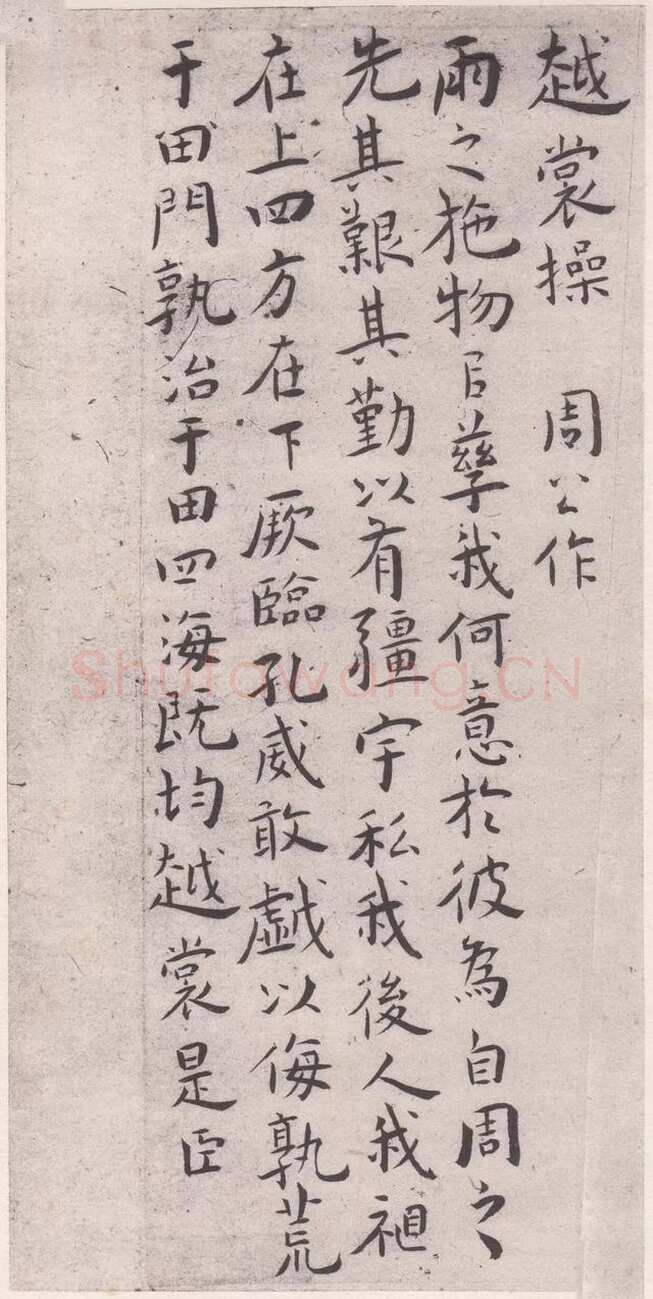 越裳操 周公作
雨之施物㠯孳我何意於彼為自周之
先其艱其勤以有疆宇私我後人我祖
在上四方在下厥臨孔威敢戲以侮孰荒
于田門孰治于田四海既均越裳是臣
Shufawang.CN